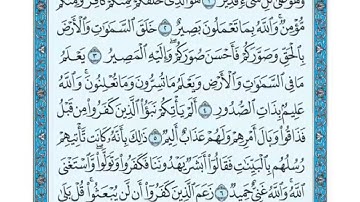 وَهُوَ عَلَىٰ كُلِّ شَىْءٍ قَدِيرٌ ١ هُوَ الَّذِى خَلَقَكُمْ فَمِنكُمْ كَافِرٌ وَمِنكُم
مُّؤْمِنٌ وَاللَّهُ بِمَا تَعْمَلُونَ بَصِيرٌ ٢ خَلَقَ السَّمَٰوَٰتِ وَالْأَرْضَ
بِالْحَقِّ وَصَوَّرَكُمْ فَأَحْسَنَ صُوَرَكُمْ وَإِلَيْهِ الْمَصِيرُ ٣ يَعْلَمُ
مَا فِى السَّمَٰوَٰتِ وَالْأَرْضِ وَيَعْلَمُ مَا تُسِرُّونَ وَمَا تُعْلِنُونَ وَاللَّهُ
عَلِيمٌ بِذَاتِ الصُّدُورِ ٤ أَلَمْ يَأْتِكُمْ نَبَؤُا۟ الَّذِينَ كَفَرُوا۟ مِن قَبْلُ
فَذَاقُوا۟ وَبَالَ أَمْرِهِمْ وَلَهُمْ عَذَابٌ أَلِيمٌ ٥ ذَٰلِكَ بِأَنَّهُ كَانَت تَّأْتِيهِمْ
رُسُلُهُم بِالْبَيِّنَٰتِ فَقَالُوٓا۟ أَبَشَرٌ يَهْدُونَنَا فَكَفَرُوا۟ وَتَوَلَّوا۟ وَّاسْتَغْنَى
اللَّهُ وَاللَّهُ غَنِىٌّ حَمِيدٌ ٦ زَعَمَ الَّذِينَ كَفَرُوٓا۟ أَن لَّن يُبْعَثُوا۟ قُلْ بَلَىٰ